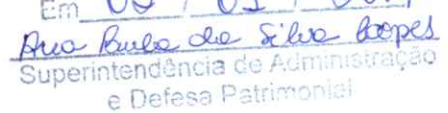 Em 09 / 01 /
Ana Paula da Silva Loopes
Superintendência de Administração
e Defesa Patrimonial